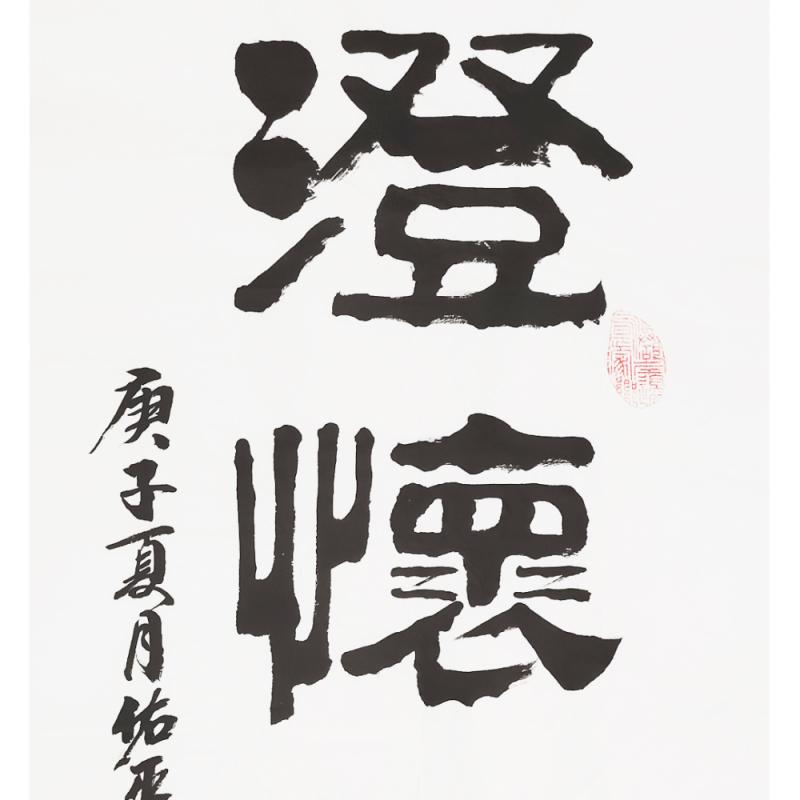 澄懷
庚子夏月佑平